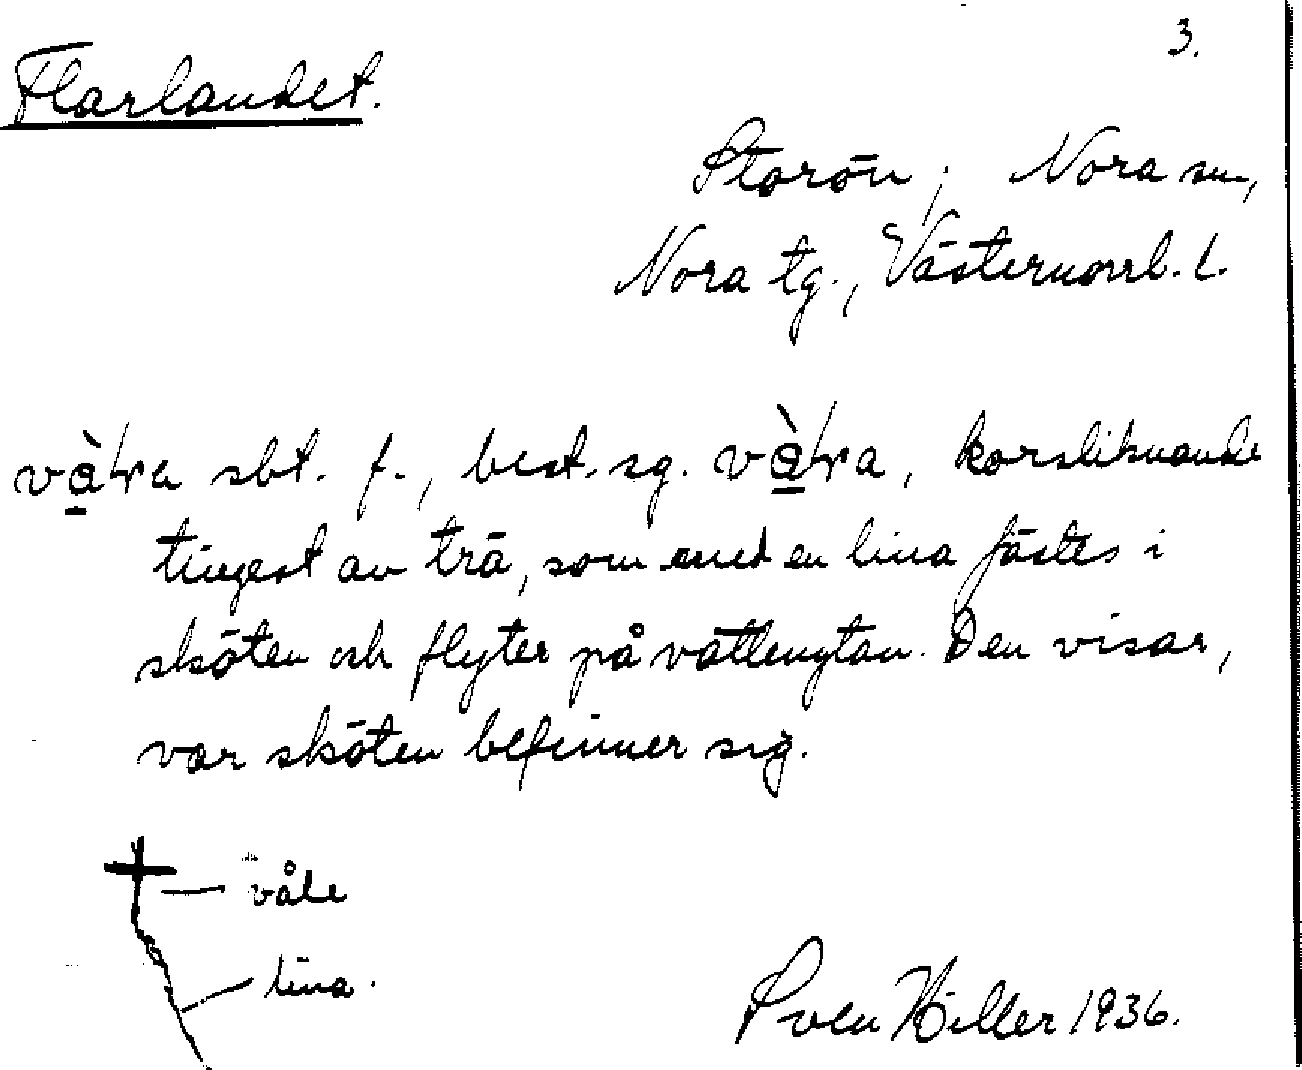 3.
Flarlandet.
Storön, Nora sn,
Nora tg., Västernorrl. l.
sbt. f., best. sg. korsliknande
tingest av trä, som med en lina fästes i
sköten och flyter på vattenytan. Den visar,
var sköten befinner sig.
våle
lina.
Sven Hiller 1936.